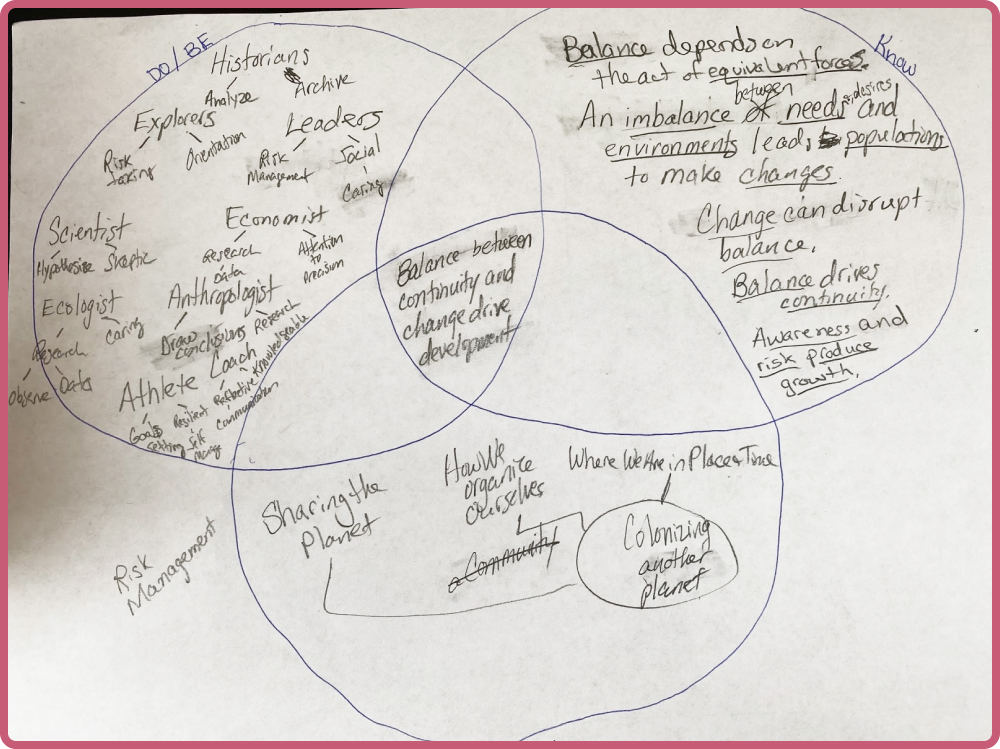 DO/BE
Historians
Analyze
Archive
Explorers
Risk
taking
Orientation
Leaders
Risk
Management
Social
Caring
Scientist
Hypothesize
Skeptic
Economist
Research
Data
Attention
to
Precision
Ecologist
Research
Observe
Data
Caring
Anthropologist
Draw
conclusions
Research
Athlete
Goal
setting
Resilient
Self
Manage
Coach
Reflective
Communication
Knowledgeable
Know
Balance depends on
the act of equivalent forces.
between
An imbalance of needs & desires and
environments leads to populations
to make changes.
Change can disrupt
balance.
Balance drives
continuity.
Awareness and
risk produce
growth.
Balance between
continuity and
change drive
development
Sharing the
Planet
How We
organize
Ourselves
a Community
Where We Are in Place & Time
Colonizing
another
planet
Risk
Management